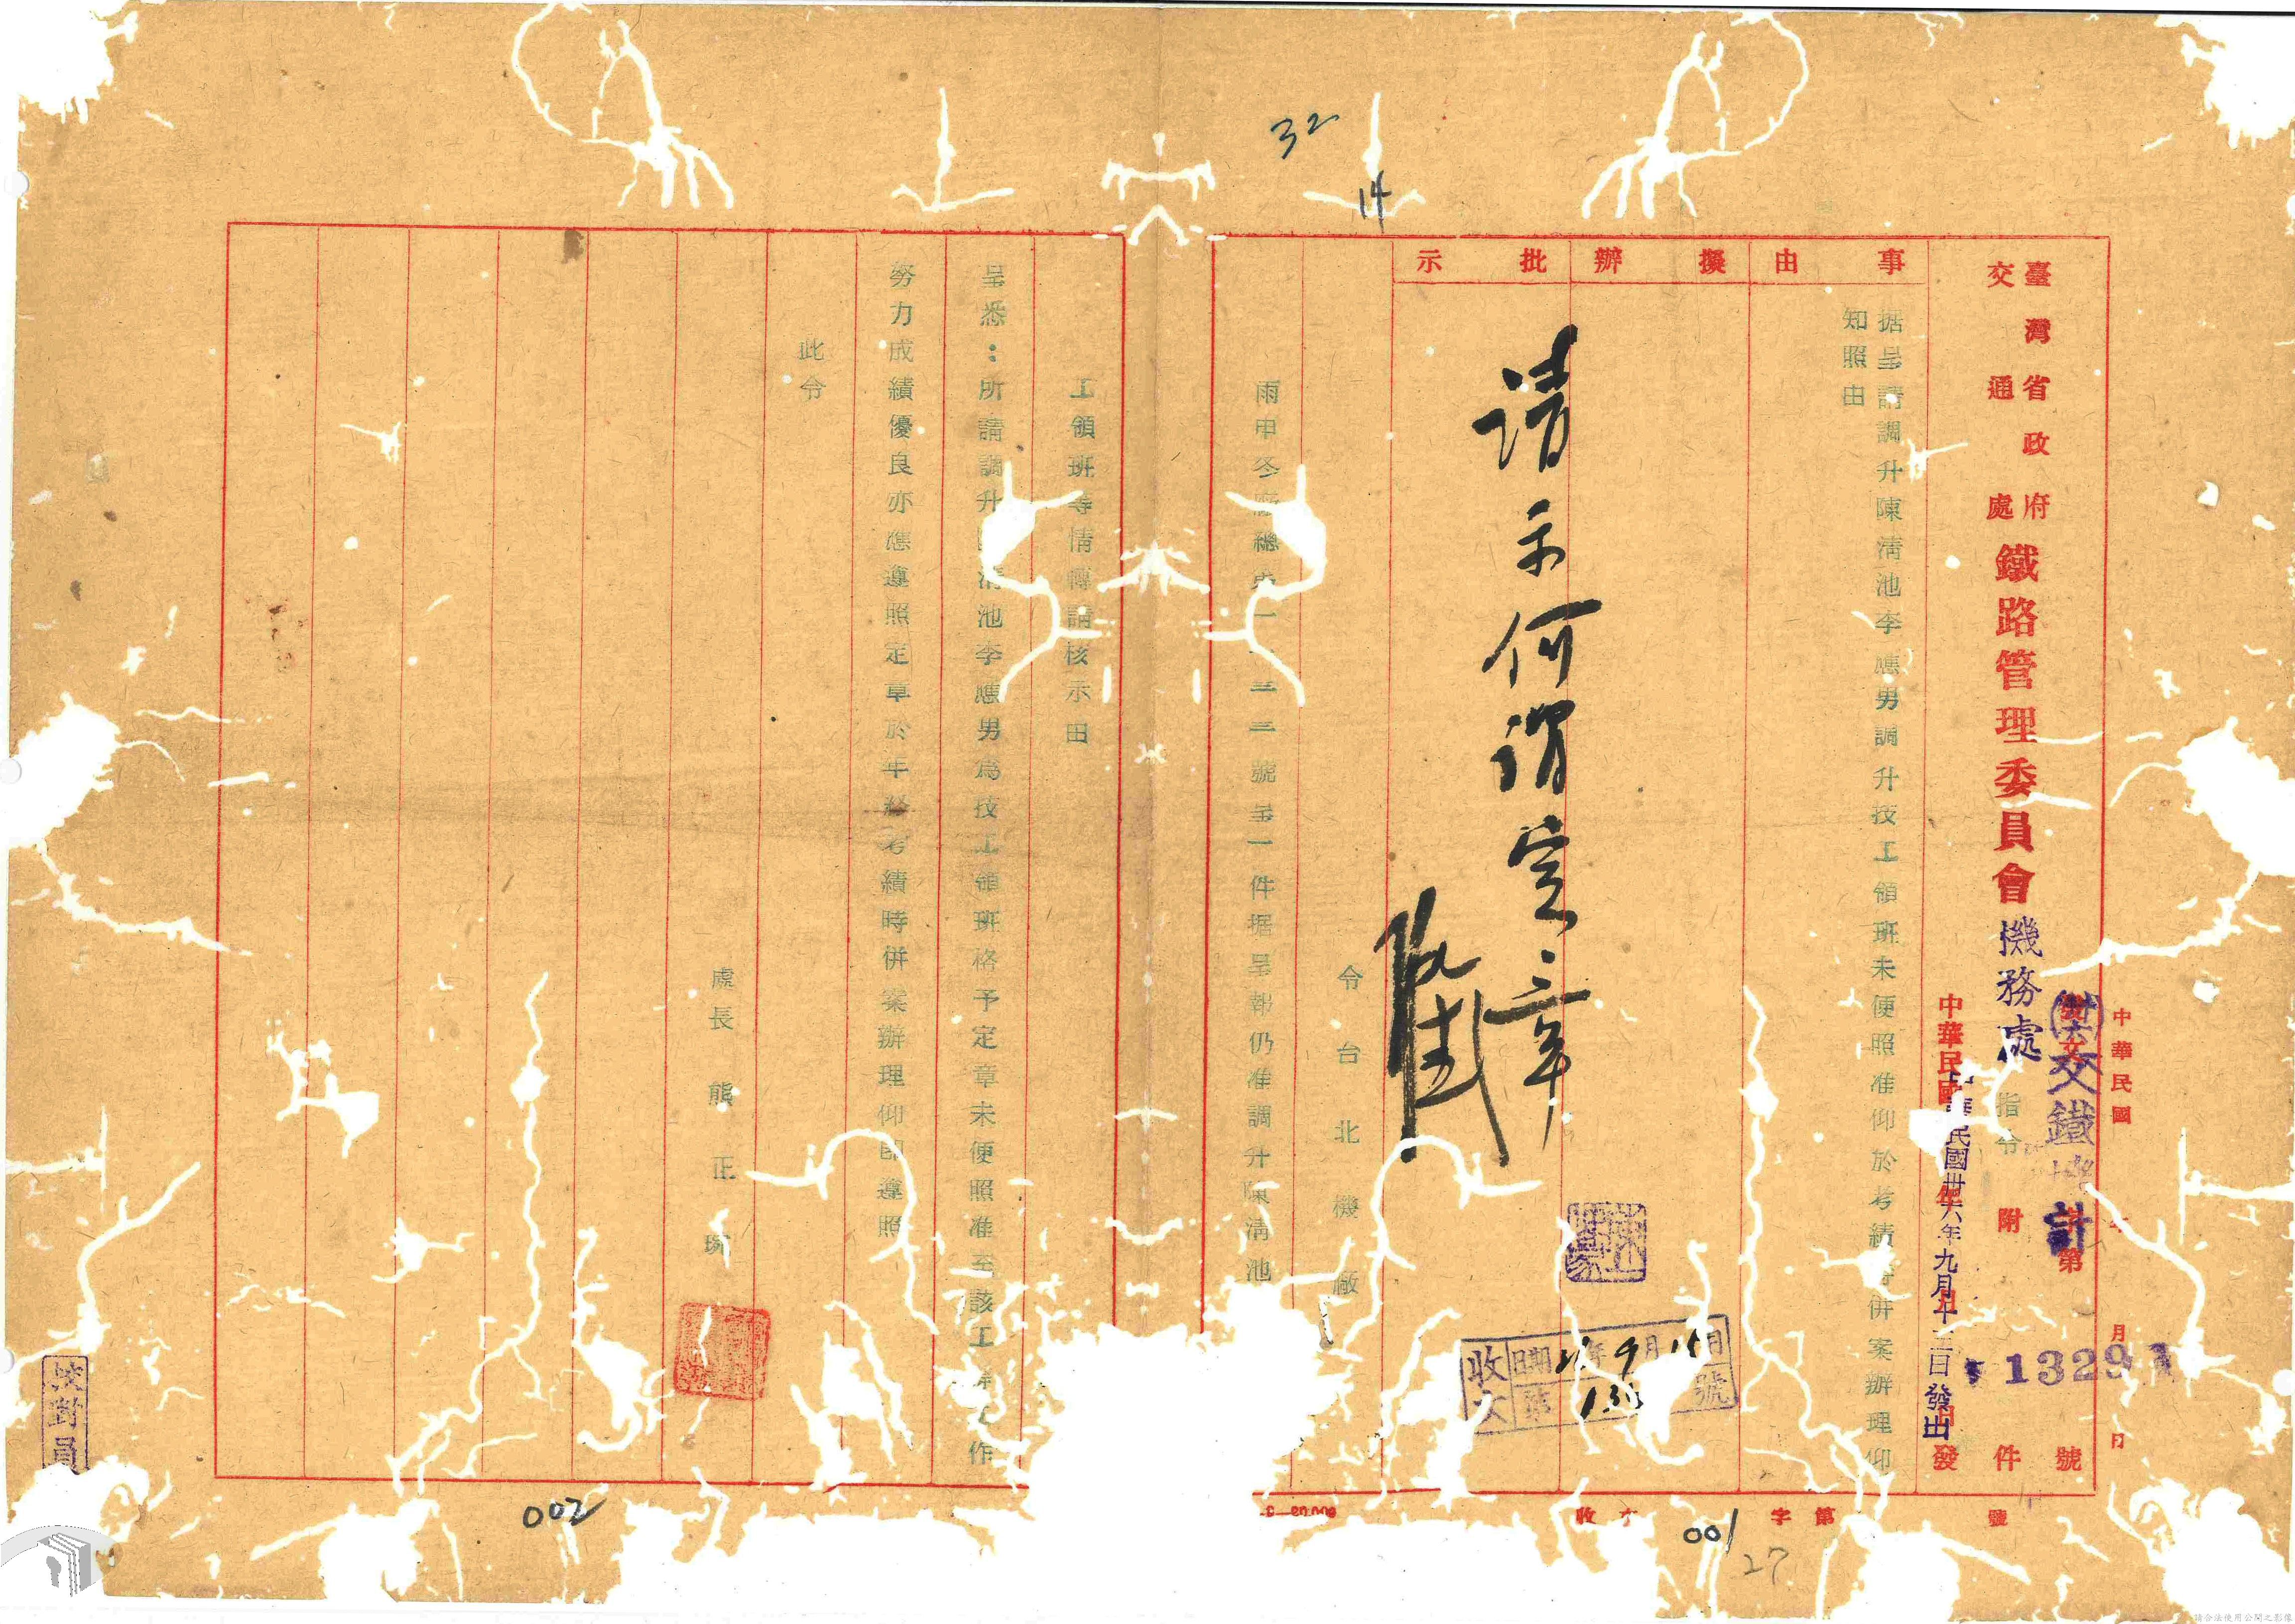 32
14
臺灣省政府
交通處
鐵路管理委員會機務處
指令
附件
中華民國 年 月 日
(卅六)交鐵 計第13291號
中華民國卅六年九月十三日發出
事由
据呈請調升陳清池李應男調升技工領班未便照准仰於考績時併案辦理仰
知照由
擬辦
批示
請示何謂定章
收文
日期 年9月15日
第 號
令台北機廠
雨申冬廠總 一 三三號呈一件据呈報仍准調升陳清池
工領班等情轉請核示由
呈悉：所請調升 清池李應男為技工領班格予定章未便照准至該工 作
努力成績優良亦應遵照定章於年終考績時併案辦理仰即遵照
此令
處長 熊正琬
校對員
收 字第 號
001
002
27
請合法使用公開之影像